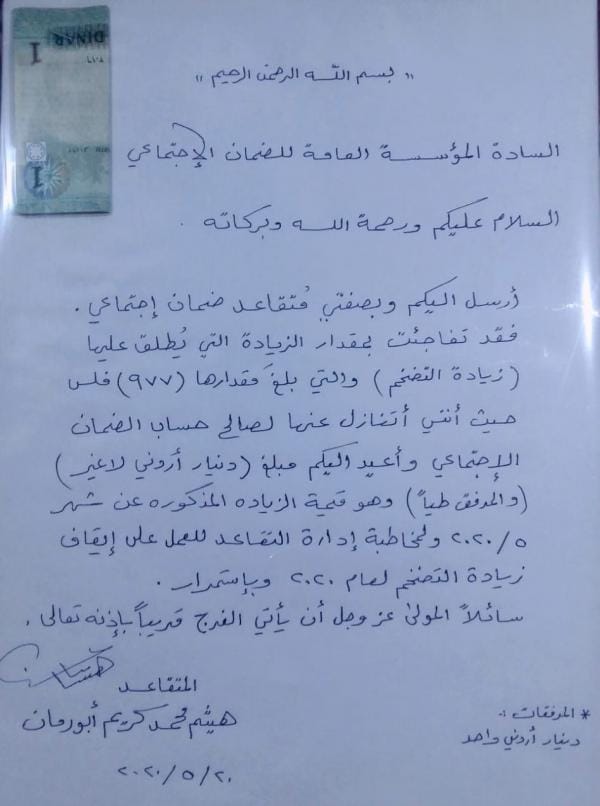 1
DINAR
" بسم الله الرحمن الرحيم "
السادة المؤسسة العامة للضمان الإجتماعي
السلام عليكم ورحمة الله وبركاته .
أرسل اليكم وبصفتي مُتقاعد ضمان إجتماعي .
فقد تفاجئت بمقدار الزيادة التي يُطلق عليها
(زيادة التضخم) والتي بلغَ مقدارها (٩٧٧) فلس
حيث أنني أتنازل عنها لصالح حساب الضمان
الإجتماعي وأعيد اليكم مبلغ (دنيار أردني لاغير)
(والمرفق طياً) وهو قيمة الزياده المذكوره عن شهر
٢٠٢٠/٥ ولمخاطبة إدارة التقاعد للعمل على إيقاف
زيادة التضخم لعام ٢٠٢٠ وبإستمرار .
سائلاً المولى عز وجل أن يأتي الفرج قريباً بإذنه تعالى .
المتقاعد
هيثم محمد كريم أبورمان
٢٠٢٠/٥/٢٠
* المرفقات :
دنيار أردني واحد